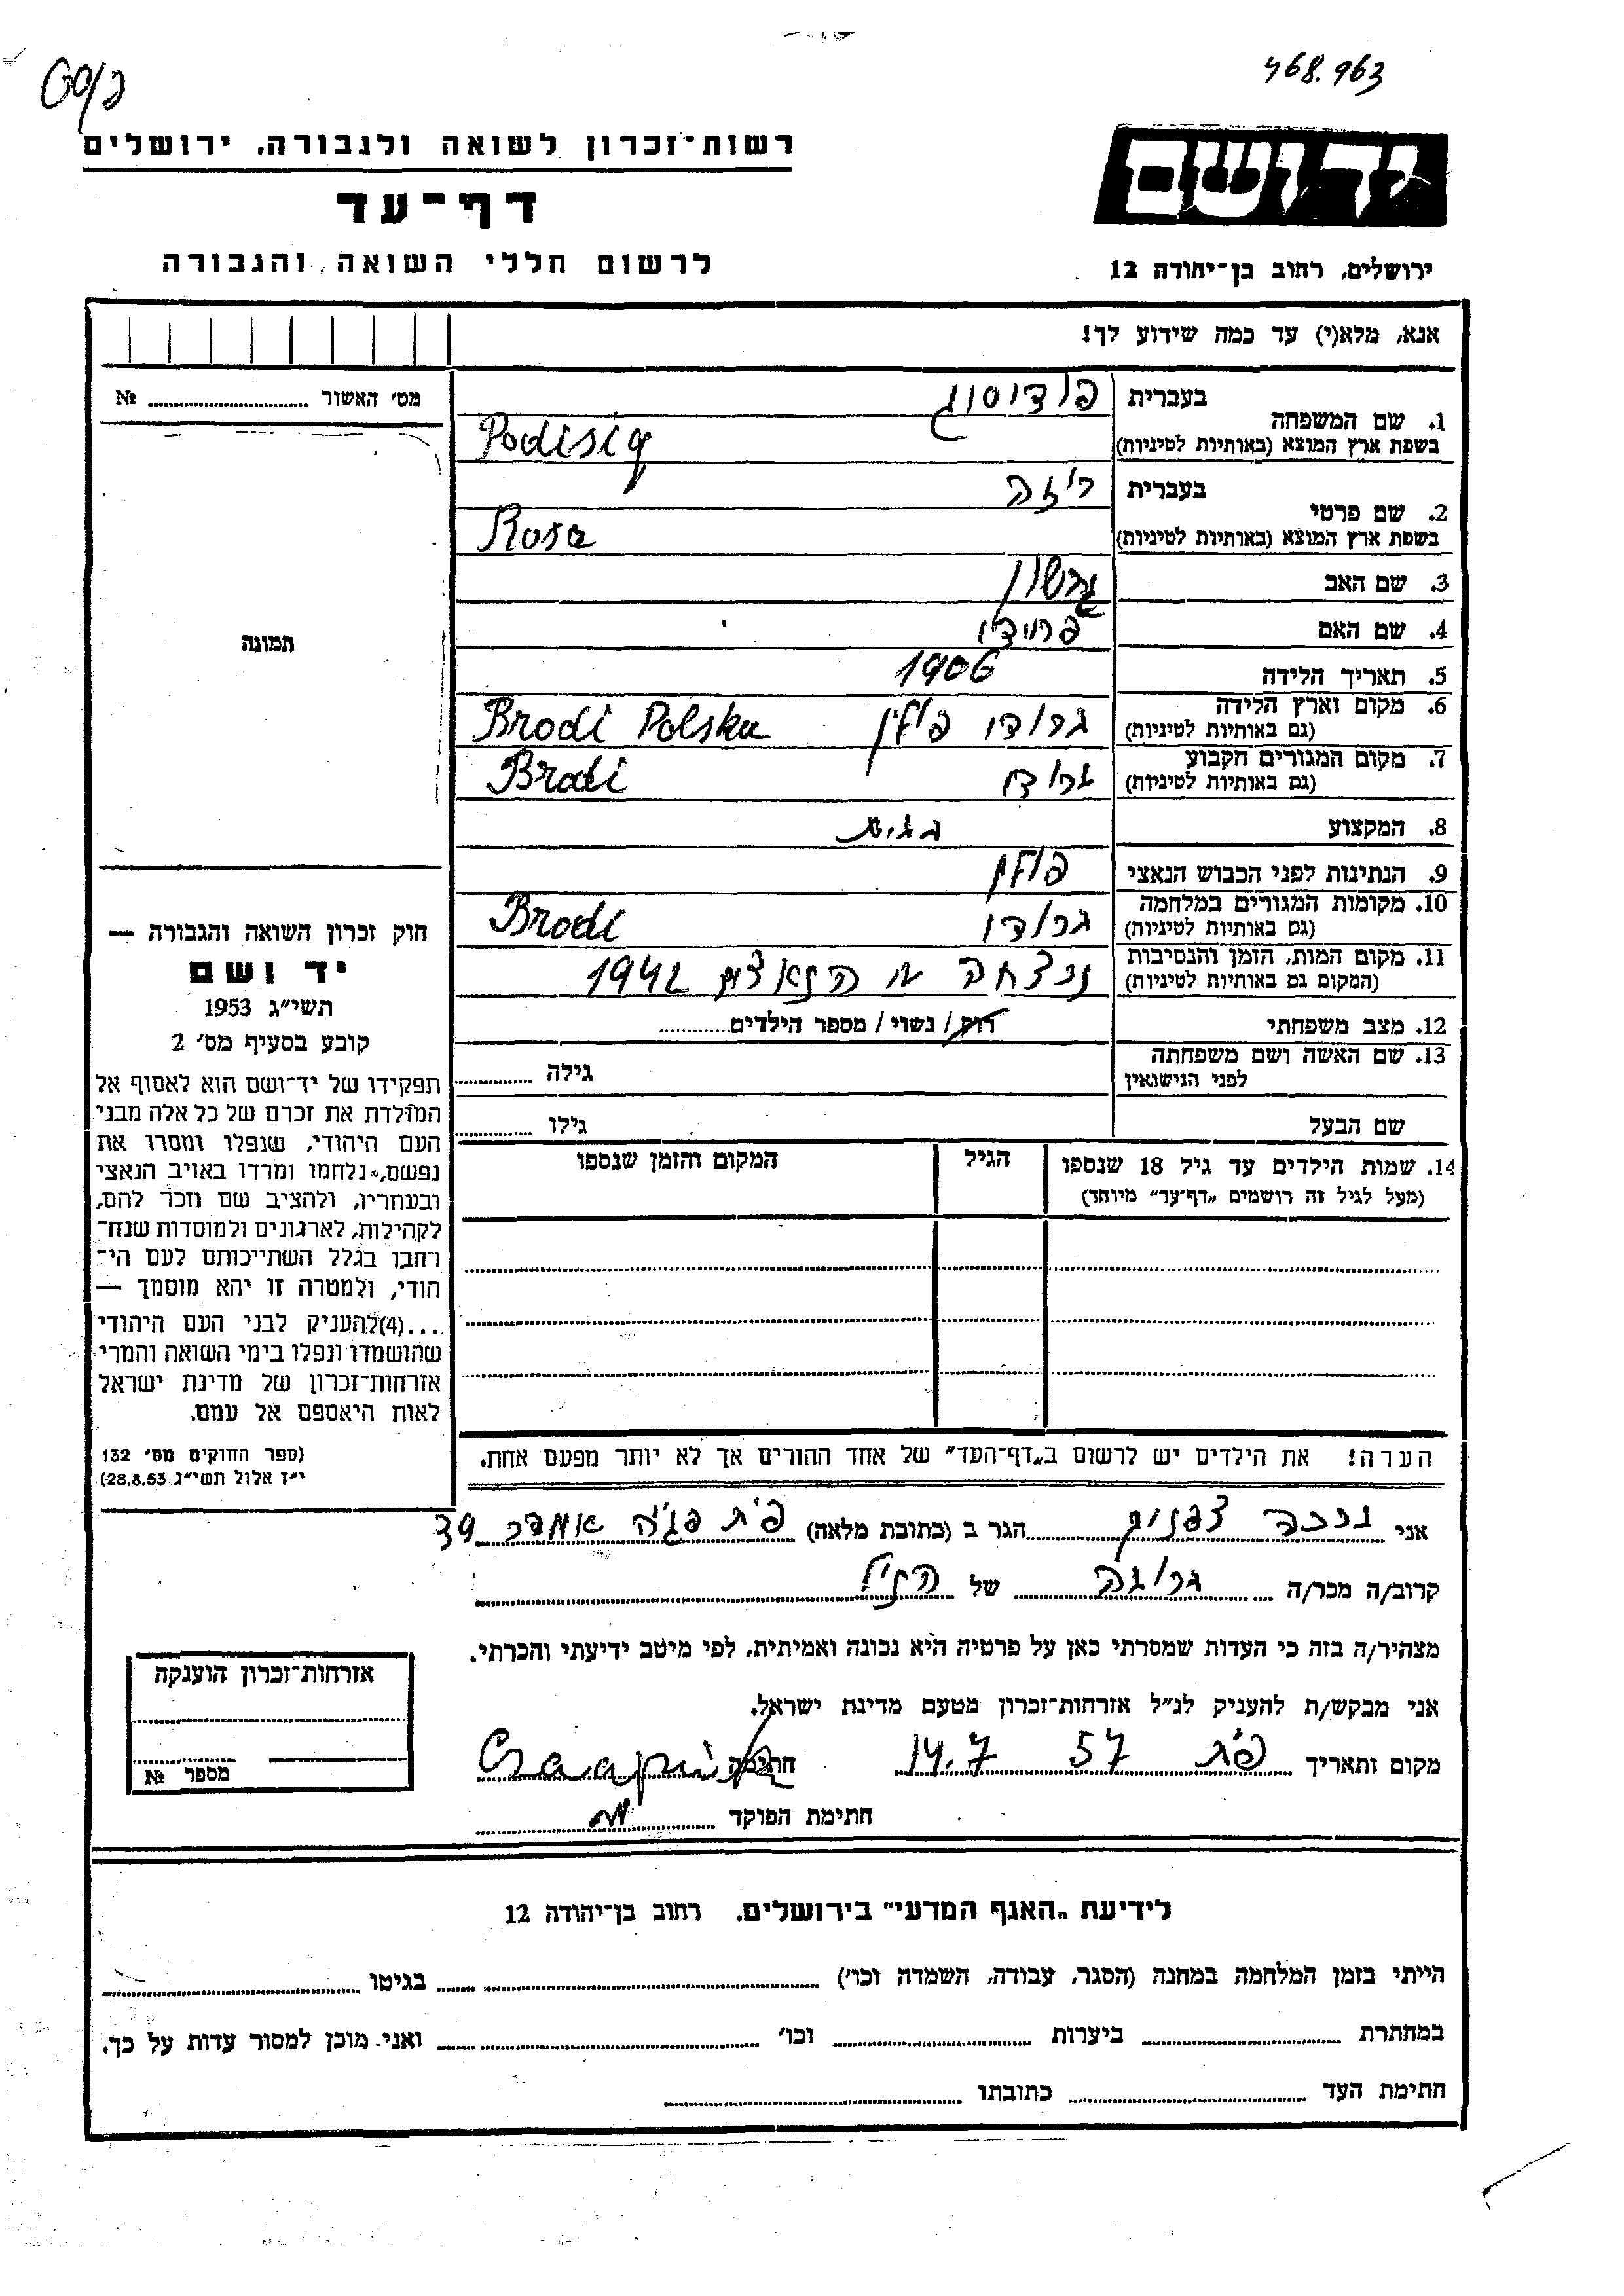 468.963
יד ושם
ירושלים, רחוב בן־יהודה 12
רשות־זכרון לשואה ולגבורה, ירושלים
דף־עד
לרשום חללי השואה והגבורה
אנא, מלא(י) עד כמה שידוע לך!
מס׳ האשור №
1. שם המשפחה
בעברית
בשפת ארץ המוצא (באותיות לטיניות)
Podisig
2. שם פרטי
בעברית רוזה
בשפת ארץ המוצא (באותיות לטיניות) Rosa
3. שם האב גרשון
4. שם האם
5. תאריך הלידה 1906
6. מקום וארץ הלידה
(גם באותיות לטיניות) ברודי פולין Brodi Polska
7. מקום המגורים הקבוע
(גם באותיות לטיניות) ברודי Brodi
8. המקצוע
9. הנתינות לפני הכבוש הנאצי פולין
10. מקומות המגורים במלחמה
(גם באותיות לטיניות) ברודי Brodi
11. מקום המות, הזמן והנסיבות
(המקום גם באותיות לטיניות) 1942
12. מצב משפחתי רוק / נשוי / מספר הילדים
13. שם האשה ושם משפחתה
לפני הנישואין גילה
שם הבעל גילו
14. שמות הילדים עד גיל 18 שנספו
(מעל לגיל זה רושמים „דף־עד״ מיוחד)
הגיל
המקום והזמן שנספו
הערה! את הילדים יש לרשום ב„דף־העד״ של אחד ההורים אך לא יותר מפעם אחת.
תמונה
חוק זכרון השואה והגבורה —
יד ושם
תשי״ג 1953
קובע בסעיף מס׳ 2
תפקידו של יד־ושם הוא לאסוף אל
המולדת את זכרם של כל אלה מבני
העם היהודי, שנפלו ומסרו את
נפשם, נלחמו ומרדו באויב הנאצי
ובעוזריו, ולהציב שם וזכר להם,
לקהילות, לארגונים ולמוסדות שנח־
רחבו בגלל השתייכותם לעם הי־
הודי, ולמטרה זו יהא מוסמך —
...(4) להעניק לבני העם היהודי
שהושמדו ונפלו בימי השואה והמרי
אזרחות־זכרון של מדינת ישראל
לאות היאספם אל עמם.
(ספר החוקים מס׳ 132
י״ז אלול תשי״ג 28.8.53)
אני הגר ב (כתובת מלאה) פ״ת
קרוב/ה מכר/ה של הנ״ל
מצהיר/ה בזה כי העדות שמסרתי כאן על פרטיה היא נכונה ואמיתית, לפי מיטב ידיעתי והכרתי.
אני מבקש/ת להעניק לנ״ל אזרחות־זכרון מטעם מדינת ישראל.
מקום ותאריך פ״ת 14.7 57 חתימה
חתימת הפוקד
אזרחות־זכרון הוענקה
מספר №
לידיעת „האגף המדעי״ בירושלים, רחוב בן־יהודה 12
הייתי בזמן המלחמה במחנה (הסגר, עבודה, השמדה וכו׳) בגיטו
במחתרת ביערות וכו׳ ואני מוכן למסור עדות על כך.
חתימת העד כתובתו